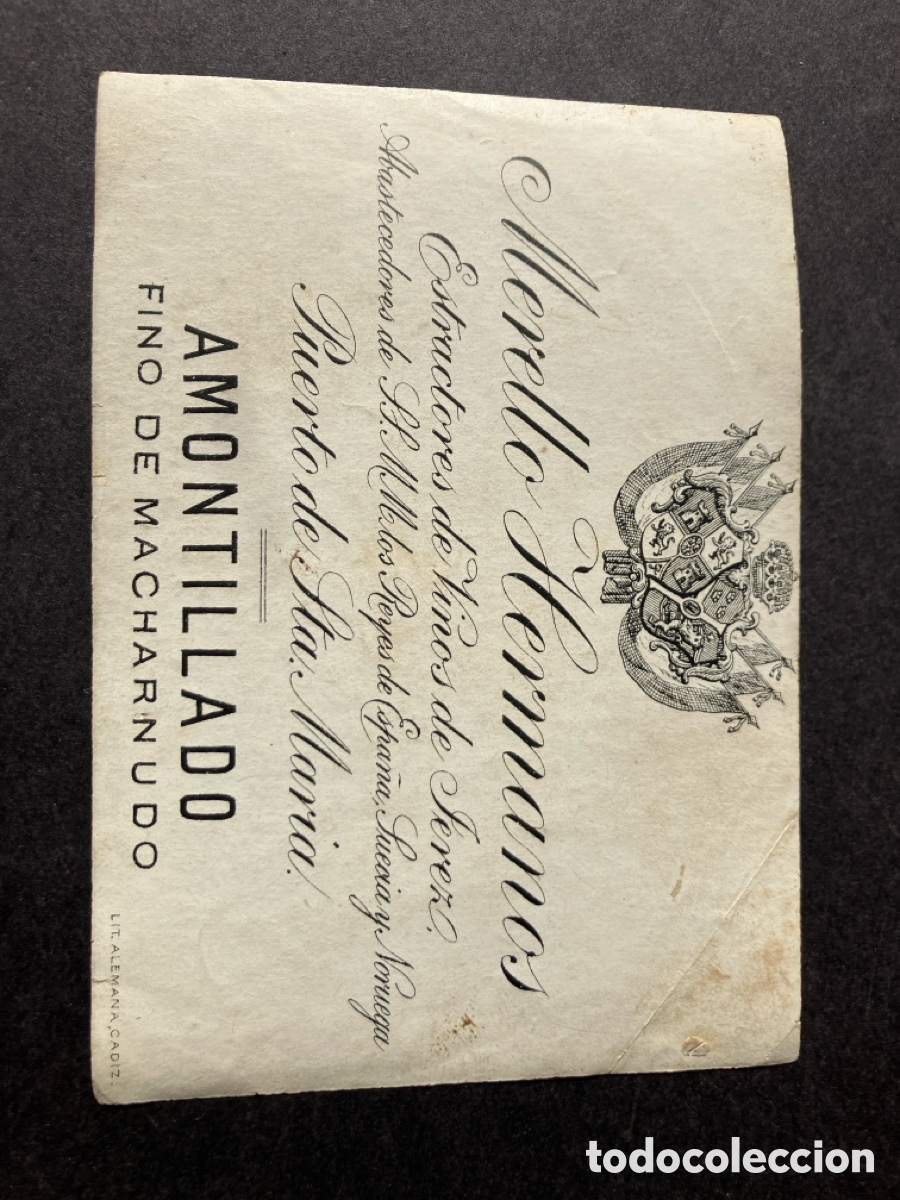 Merello Hermanos
Estractores de Vinos de Jerez.
Abastecedores de S.S. M.M. los Reyes de España, Suecia y Noruega
Puerto de Sta. Maria.
AMONTILLADO
FINO DE MACHARNUDO
LIT. ALEMANA, CADIZ.
todocoleccion